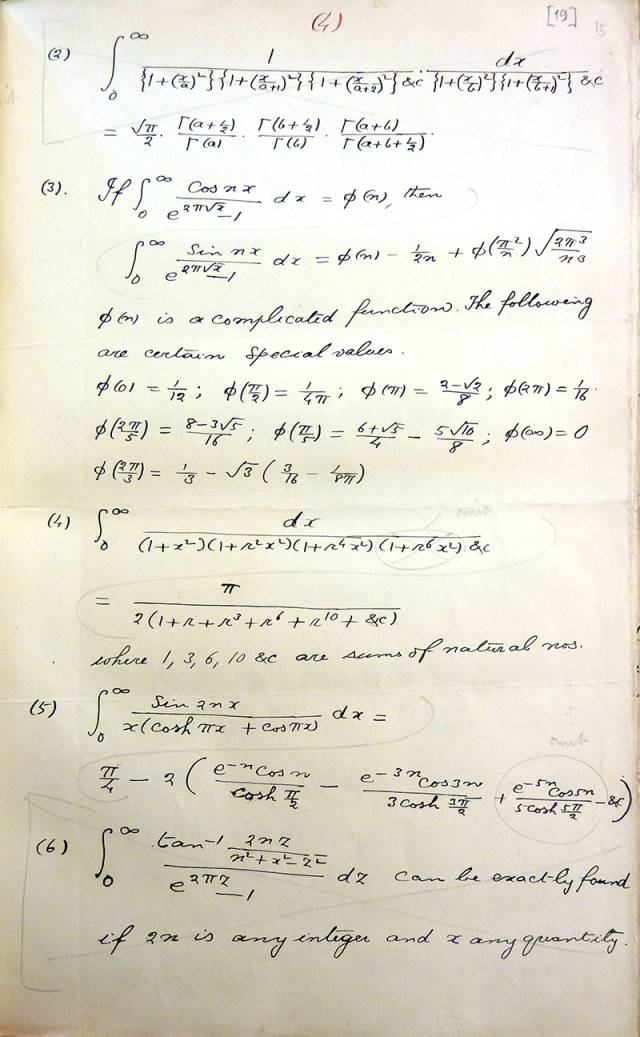 (4)
[19]
15
(2) ∫₀^∞ 1/({1+(x/a)²}{1+(x/(a+1))²}{1+(x/(a+2))²} &c) · dx/({1+(x/b)²}{1+(x/(b+1))²} &c)
= √π/2 · Γ(a+½)/Γ(a) · Γ(b+½)/Γ(b) · Γ(a+b)/Γ(a+b+½).
(3). If ∫₀^∞ Cos nx/(e^(2π√x) − 1) dx = φ(n), then
∫₀^∞ Sin nx/(e^(2π√x) − 1) dx = φ(n) − 1/2n + φ(π²/n) √(2π³/n³)
φ(n) is a complicated function. The following
are certain special values.
φ(0) = 1/12; φ(π/2) = 1/4π; φ(π) = (2−√2)/8; φ(2π) = 1/16.
φ(2π/5) = (8−3√5)/16; φ(π/5) = (6+√5)/4 − 5√10/8; φ(∞) = 0
φ(2π/3) = 1/3 − √3 (3/16 − 1/8π)
omit
(4) ∫₀^∞ dx/((1+x²)(1+r²x²)(1+r⁴x²)(1+r⁶x²) &c
= π/(2(1+r+r³+r⁶+r¹⁰+&c))
where 1, 3, 6, 10 &c are sums of natural nos.
(5) ∫₀^∞ Sin 2nx/(x(cosh πx + cos πx)) dx =
omit
π/4 − 2 (e^(−n) cos n/cosh π/2 − e^(−3n) cos 3n/3 cosh 3π/2 + e^(−5n) cos 5n/5 cosh 5π/2 − &c)
(6) ∫₀^∞ tan⁻¹ (2nz/(n²+x²−z²))/(e^(2πz) − 1) dz can be exactly found
if 2n is any integer and x any quantity.